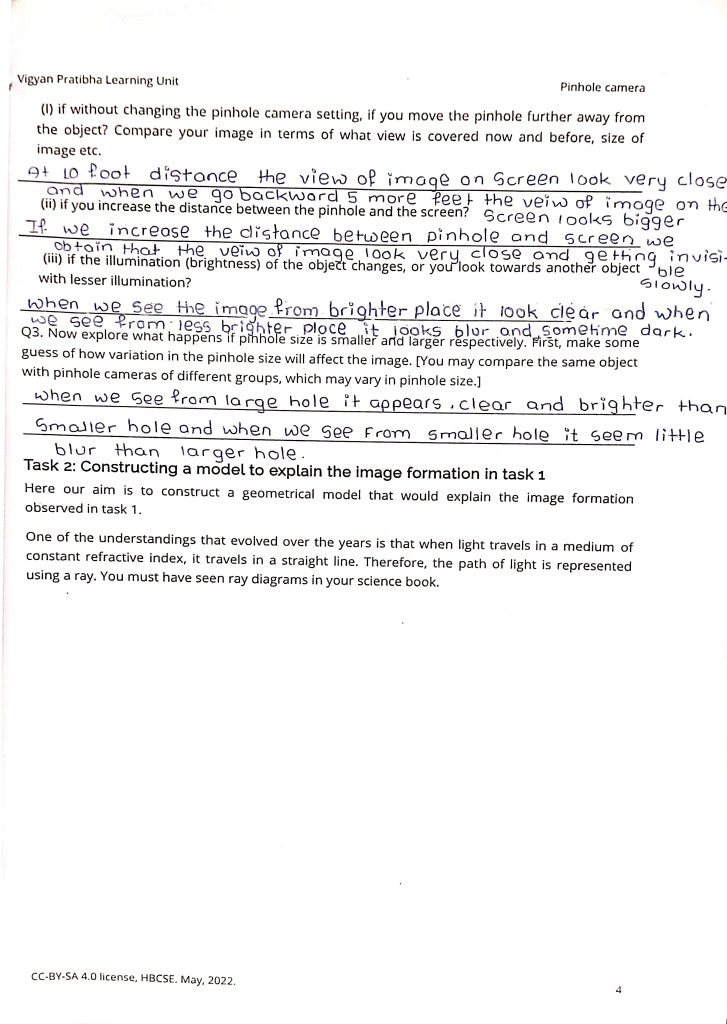 Vigyan Pratibha Learning Unit
Pinhole camera
(I) if without changing the pinhole camera setting, if you move the pinhole further away from
the object? Compare your image in terms of what view is covered now and before, size of
image etc.
At 10 foot distance the view of image on screen look very close
and when we go backward 5 more feet the veiw of image on the
screen looks bigger
(ii) if you increase the distance between the pinhole and the screen?
If we increase the distance between pinhole and screen we
obtain that the veiw of image look very close and getting invisi-
ble
slowly.
(iii) if the illumination (brightness) of the object changes, or you look towards another object
with lesser illumination?
when we see the image from brighter place it look clear and when
we see from less brighter place it looks blur and sometime dark.
Q3. Now explore what happens if pinhole size is smaller and larger respectively. First, make some
guess of how variation in the pinhole size will affect the image. [You may compare the same object
with pinhole cameras of different groups, which may vary in pinhole size.]
when we see from large hole it appears . clear and brighter than
smaller hole and when we see from smaller hole it seem little
blur than larger hole.
Task 2: Constructing a model to explain the image formation in task 1
Here our aim is to construct a geometrical model that would explain the image formation
observed in task 1.
One of the understandings that evolved over the years is that when light travels in a medium of
constant refractive index, it travels in a straight line. Therefore, the path of light is represented
using a ray. You must have seen ray diagrams in your science book.
CC-BY-SA 4.0 license, HBCSE. May, 2022.
4